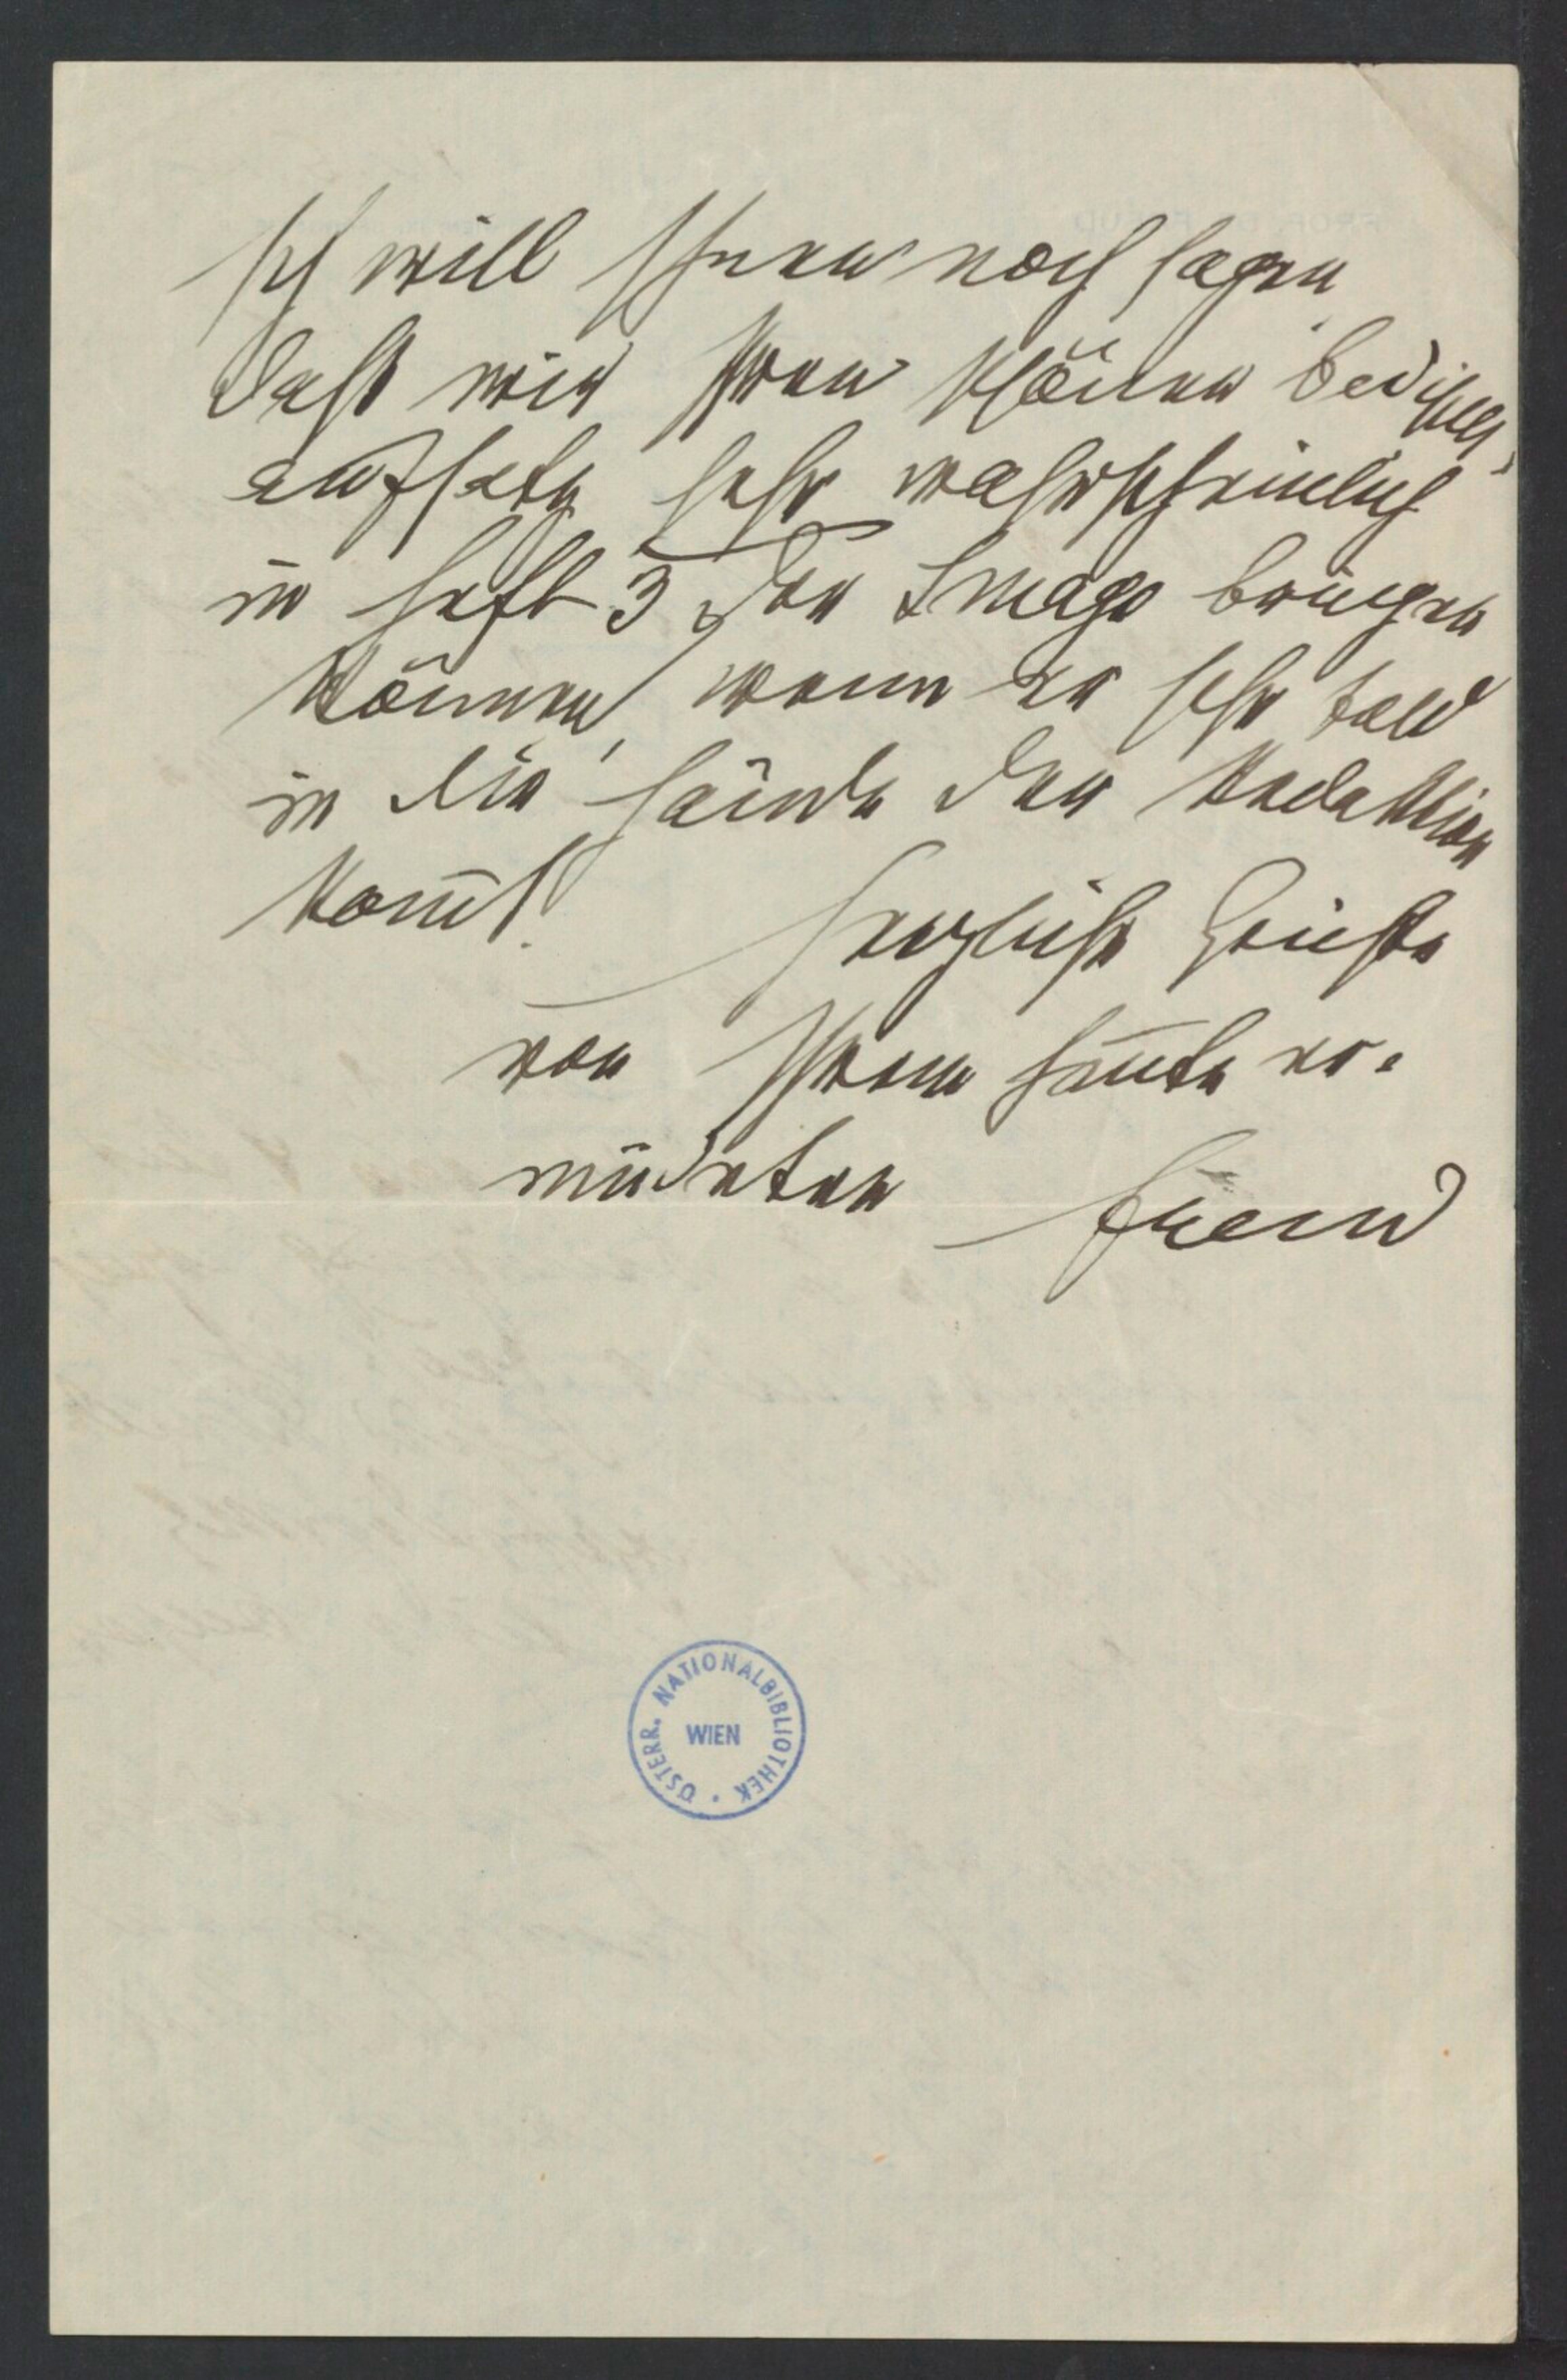 Ich will Ihnen noch sagen
daß wir Ihren schönen
aufsatz sehr wahrscheinlich
in Heft 3 der Imago bringen
können, wenn er sehr bald
in die Hände der Redaktion
kom̄t.
Herzliche Grüße
von Ihrem heute er-
müdeten
Freud
ÖSTERR. NATIONALBIBLIOTHEK
WIEN